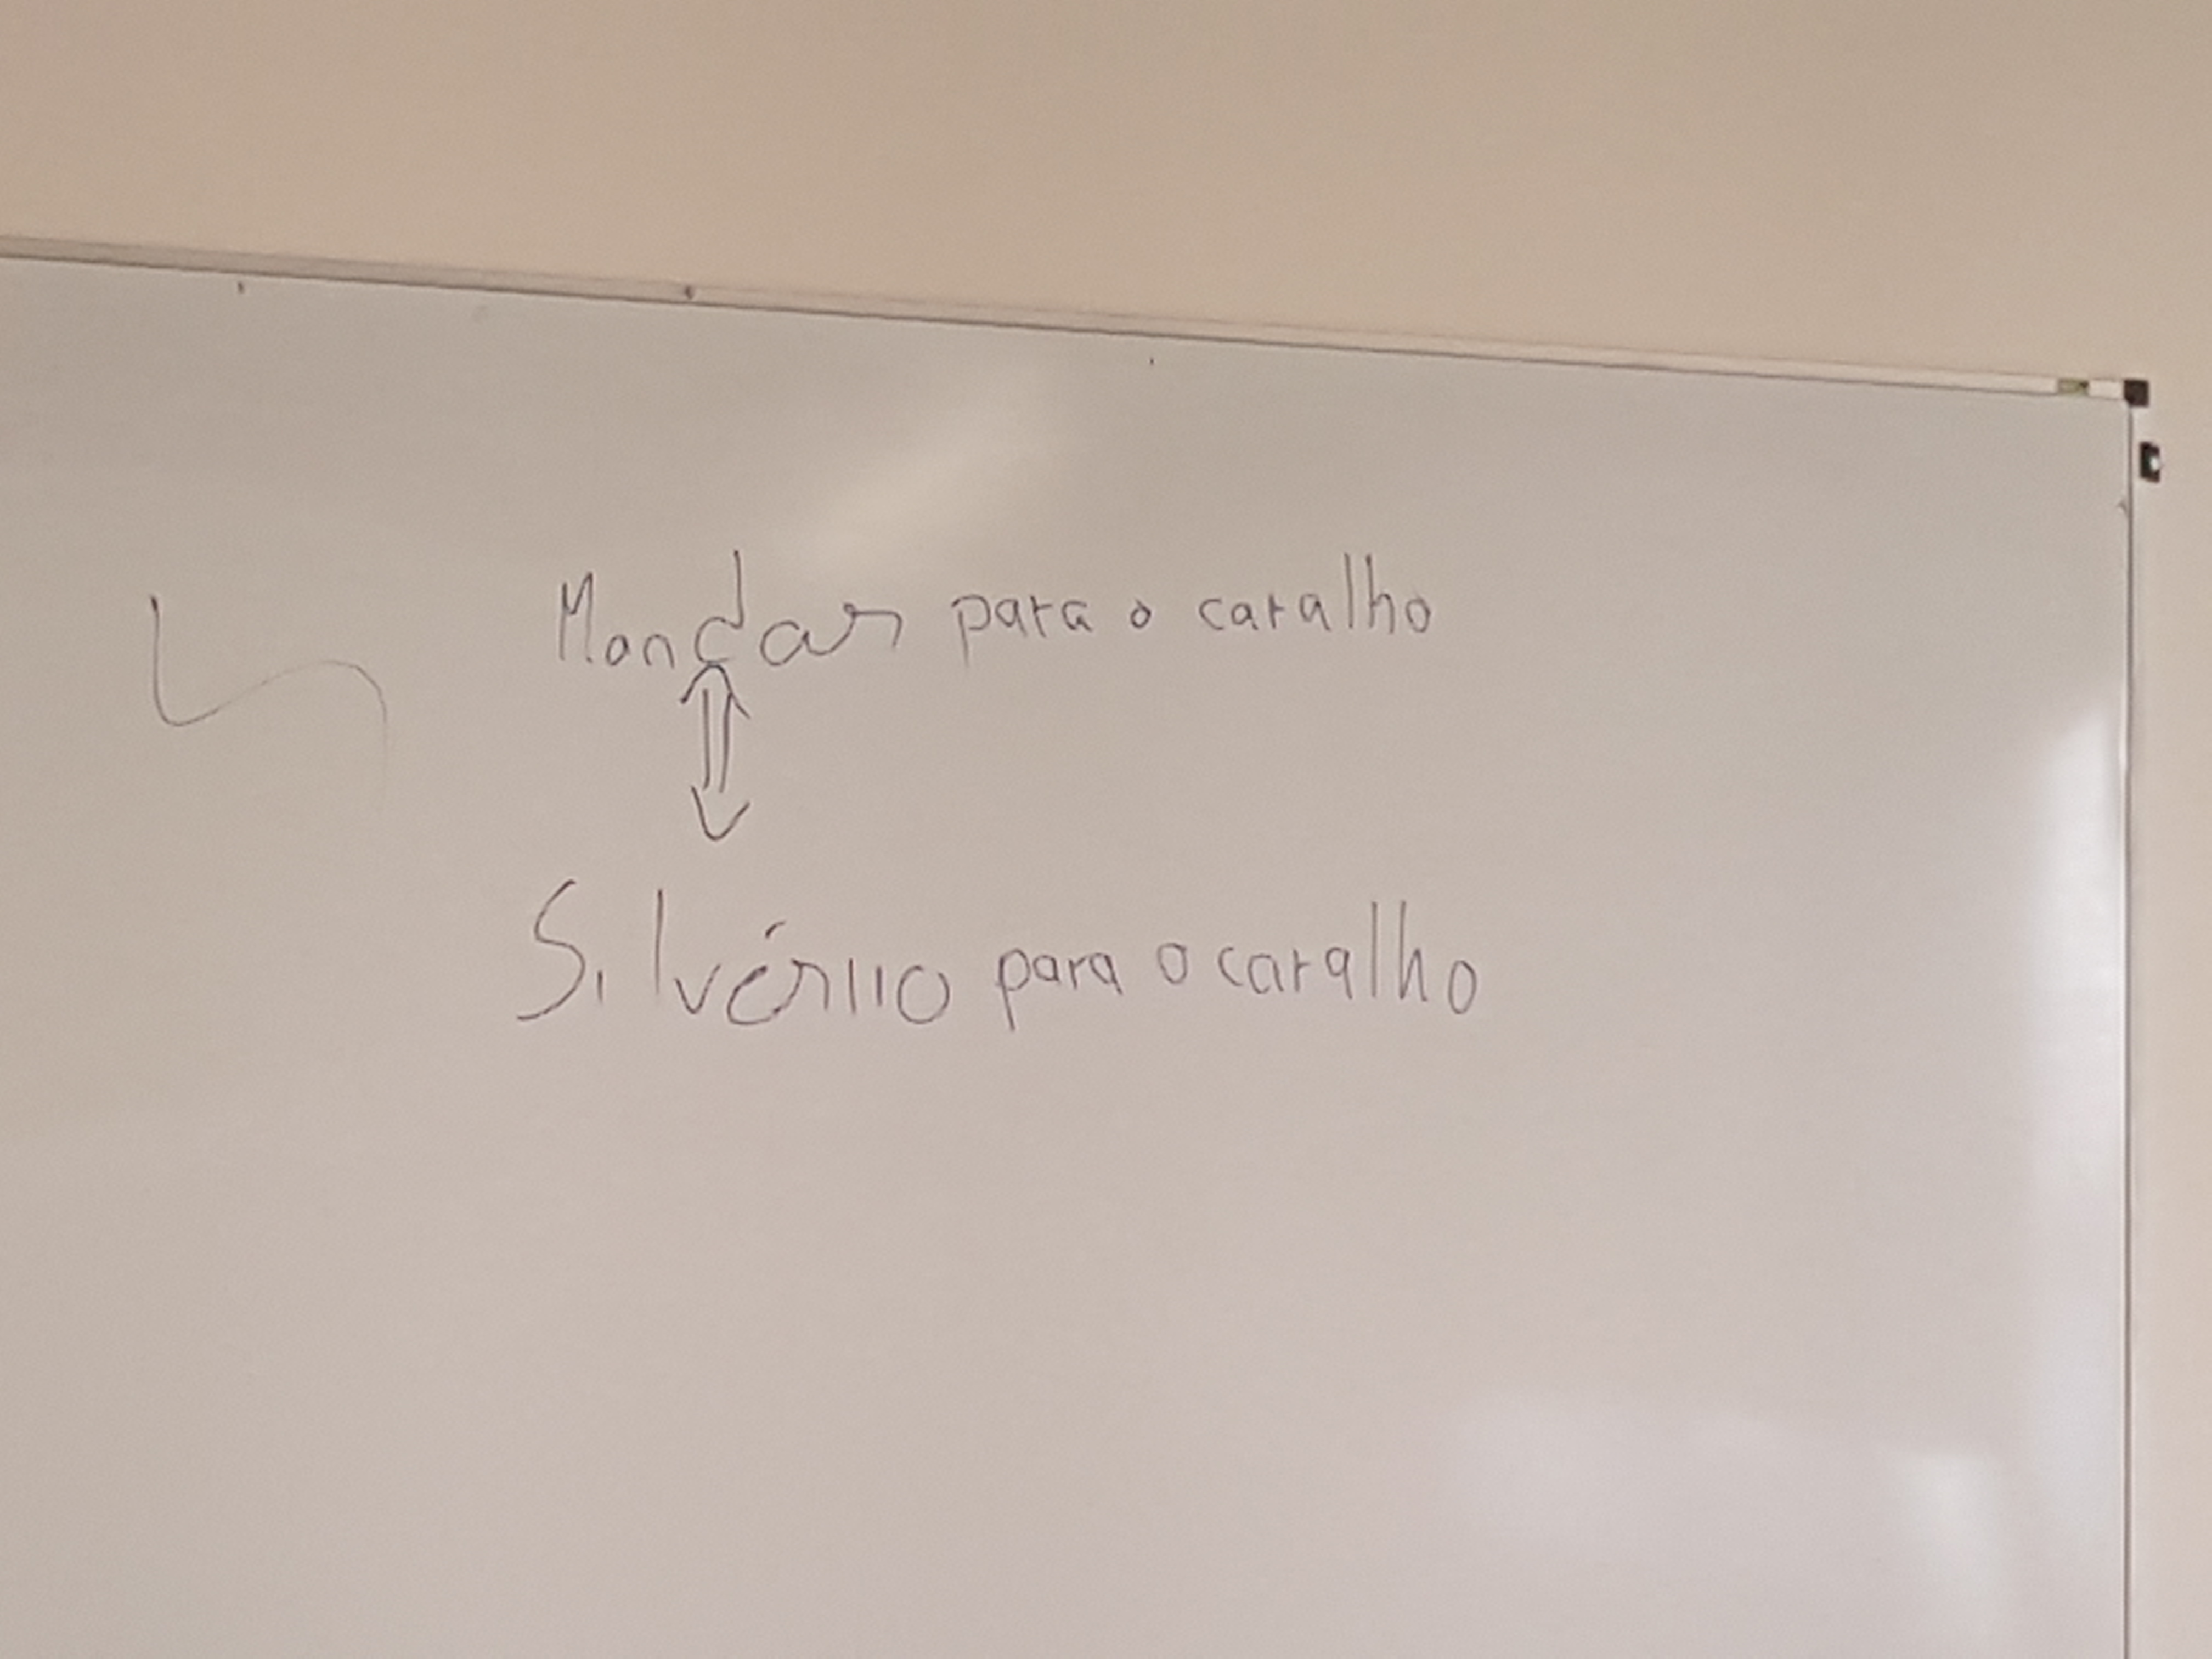 Mandar para o caralho
Silvério para o caralho